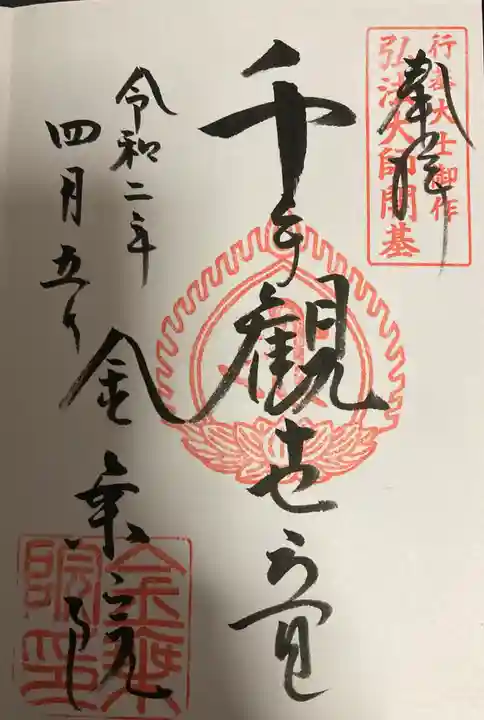 奉拝
行基大士御作
弘法大師開基
千手觀世音
令和二年
四月五日
金乗院
金乗院印